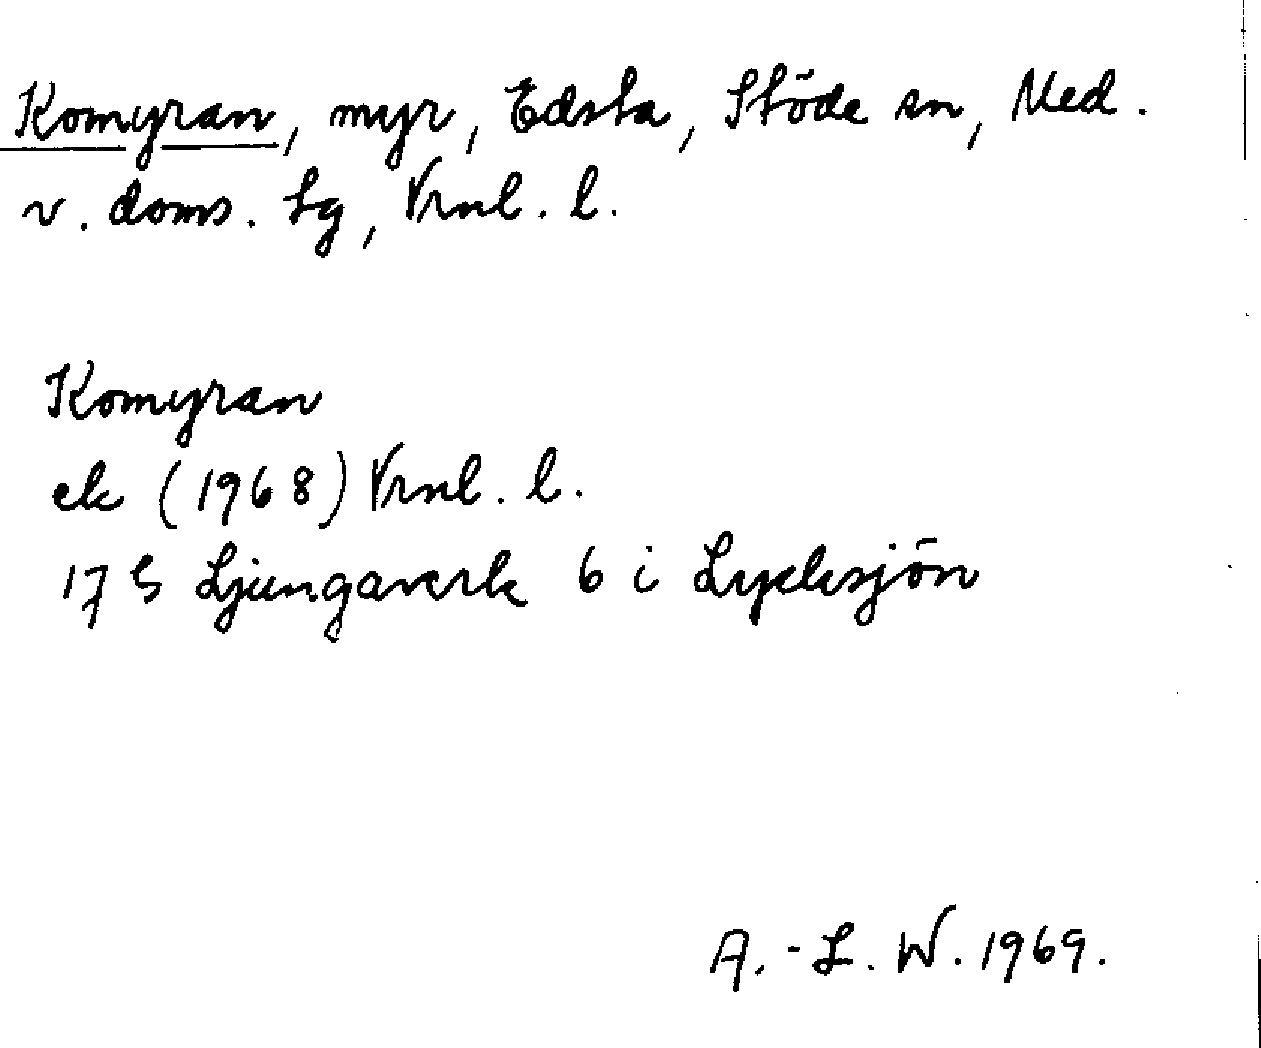 Komyran, myr, Edsta, Stöde sn, Med.
v. doms. tg, Vrnl. l.
Komyran
ek (1968) Vrnl. l.
17 G Ljungaverk 6 i Lycksjön
A.-L. W. 1969.